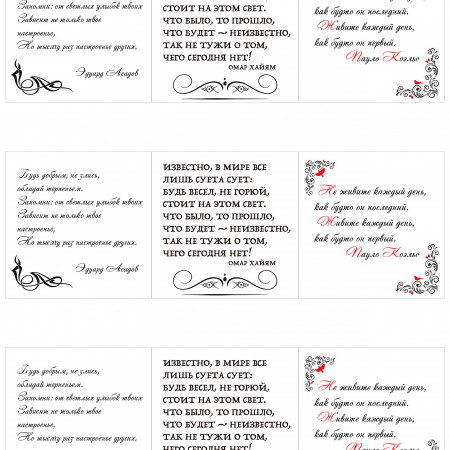 Запомни: от светлых улыбок твоих
Зависит не только твое
настроенье,
Но тысячу раз настроенье других.
Эдуард Асадов
СТОИТ НА ЭТОМ СВЕТ.
ЧТО БЫЛО, ТО ПРОШЛО,
ЧТО БУДЕТ ~ НЕИЗВЕСТНО,
ТАК НЕ ТУЖИ О ТОМ,
ЧЕГО СЕГОДНЯ НЕТ!
ОМАР ХАЙЯМ
как будто он последний.
Живите каждый день,
как будто он первый.
Пауло Коэльо
Будь добрым, не злись,
обладай терпеньем.
Запомни: от светлых улыбок твоих
Зависит не только твое
настроенье,
Но тысячу раз настроенье других.
Эдуард Асадов
ИЗВЕСТНО, В МИРЕ ВСЕ
ЛИШЬ СУЕТА СУЕТ:
БУДЬ ВЕСЕЛ, НЕ ГОРЮЙ,
СТОИТ НА ЭТОМ СВЕТ.
ЧТО БЫЛО, ТО ПРОШЛО,
ЧТО БУДЕТ ~ НЕИЗВЕСТНО,
ТАК НЕ ТУЖИ О ТОМ,
ЧЕГО СЕГОДНЯ НЕТ!
ОМАР ХАЙЯМ
Не живите каждый день,
как будто он последний.
Живите каждый день,
как будто он первый.
Пауло Коэльо
Будь добрым, не злись,
обладай терпеньем.
Запомни: от светлых улыбок твоих
Зависит не только твое
настроенье,
Но тысячу раз настроенье других.
ИЗВЕСТНО, В МИРЕ ВСЕ
ЛИШЬ СУЕТА СУЕТ:
БУДЬ ВЕСЕЛ, НЕ ГОРЮЙ,
СТОИТ НА ЭТОМ СВЕТ.
ЧТО БЫЛО, ТО ПРОШЛО,
ЧТО БУДЕТ ~ НЕИЗВЕСТНО,
ТАК НЕ ТУЖИ О ТОМ,
Не живите каждый день,
как будто он последний.
Живите каждый день,
как будто он первый.